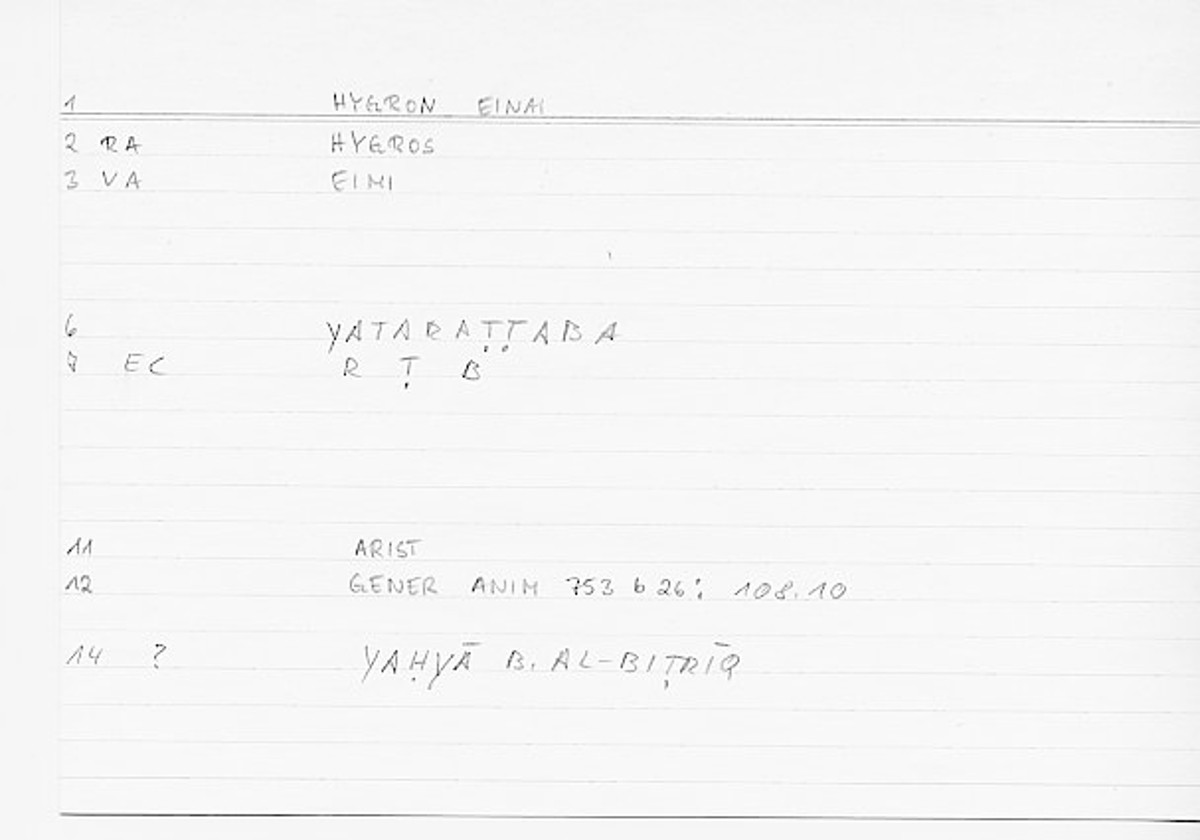 1 HYGRON EINAI
2 RA HYGROS
3 VA EIMI
6 YATARAṬṬABA
7 EC R Ṭ B
11 ARIST
12 GENER ANIM 753 b 26: 108.10
14 ? YAḤYĀ B. AL-BIṬRĪQ